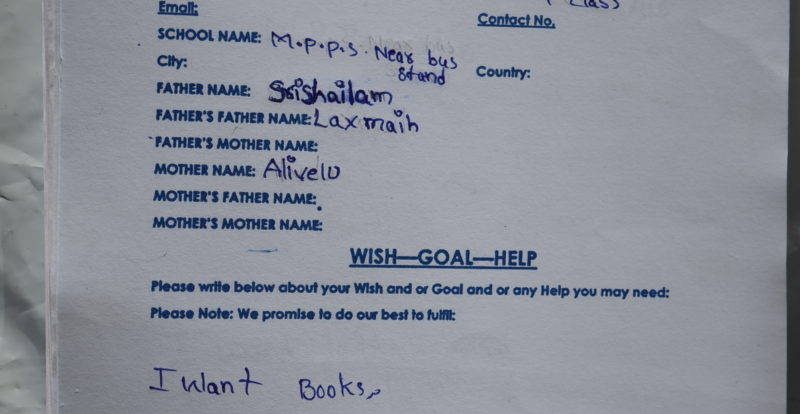 Class
Email:
Contact No.
SCHOOL NAME: M.p.p.s. Near bus
stand
City:
Country:
FATHER NAME: Srishailam
FATHER'S FATHER NAME: Laxmaih
FATHER'S MOTHER NAME:
MOTHER NAME: Alivelu
MOTHER'S FATHER NAME:
MOTHER'S MOTHER NAME:
WISH—GOAL—HELP
Please write below about your Wish and or Goal and or any Help you may need:
Please Note: We promise to do our best to fulfil:
I want Books.